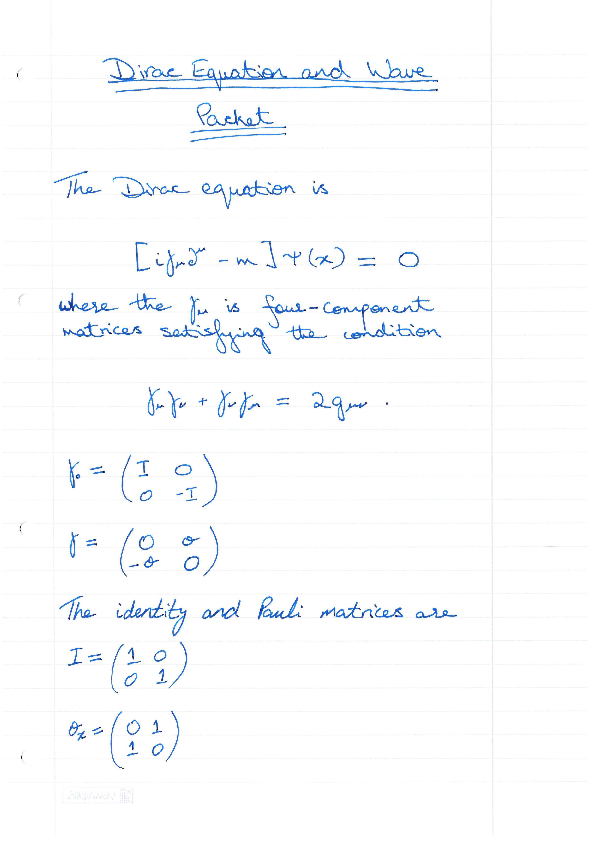 Dirac Equation and Wave
Packet
The Dirac equation is
[iγ_μ∂^μ - m]Ψ(x) = 0
where the γ_μ is four-component
matrices satisfying the condition
γ_μγ_ν + γ_νγ_μ = 2g_μν .
γ_0 = ( I 0
0 -I )
γ = ( 0 σ
-σ 0 )
The identity and Pauli matrices are
I = ( 1 0
0 1 )
σ_x = ( 0 1
1 0 )